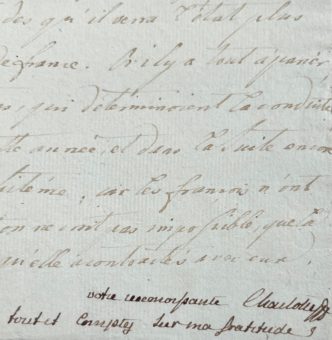 des qu'il verra l'état plus
de france. Or il y a tout à parier
qui déterminoient la conduite
année, et dans la suite encore
car les françois n'ont
ne sont pas impossible, que la
qu'elle a contractés avec eux.
votre reconoissante Charlotte
et Comptes sur ma gratitude